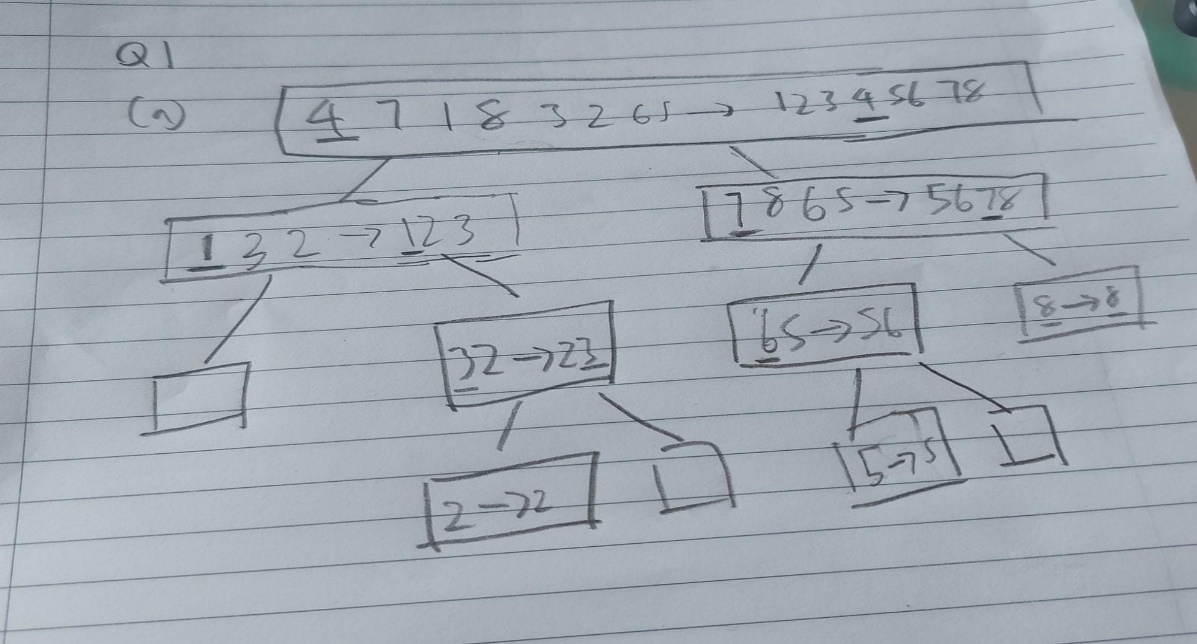 Q1
(a) 4 7 1 8 3 2 6 5 → 1 2 3 4 5 6 7 8
1 3 2 → 1 2 3
7 8 6 5 → 5 6 7 8
3 2 → 2 3
6 5 → 5 6
8 → 8
2 → 2
5 → 5